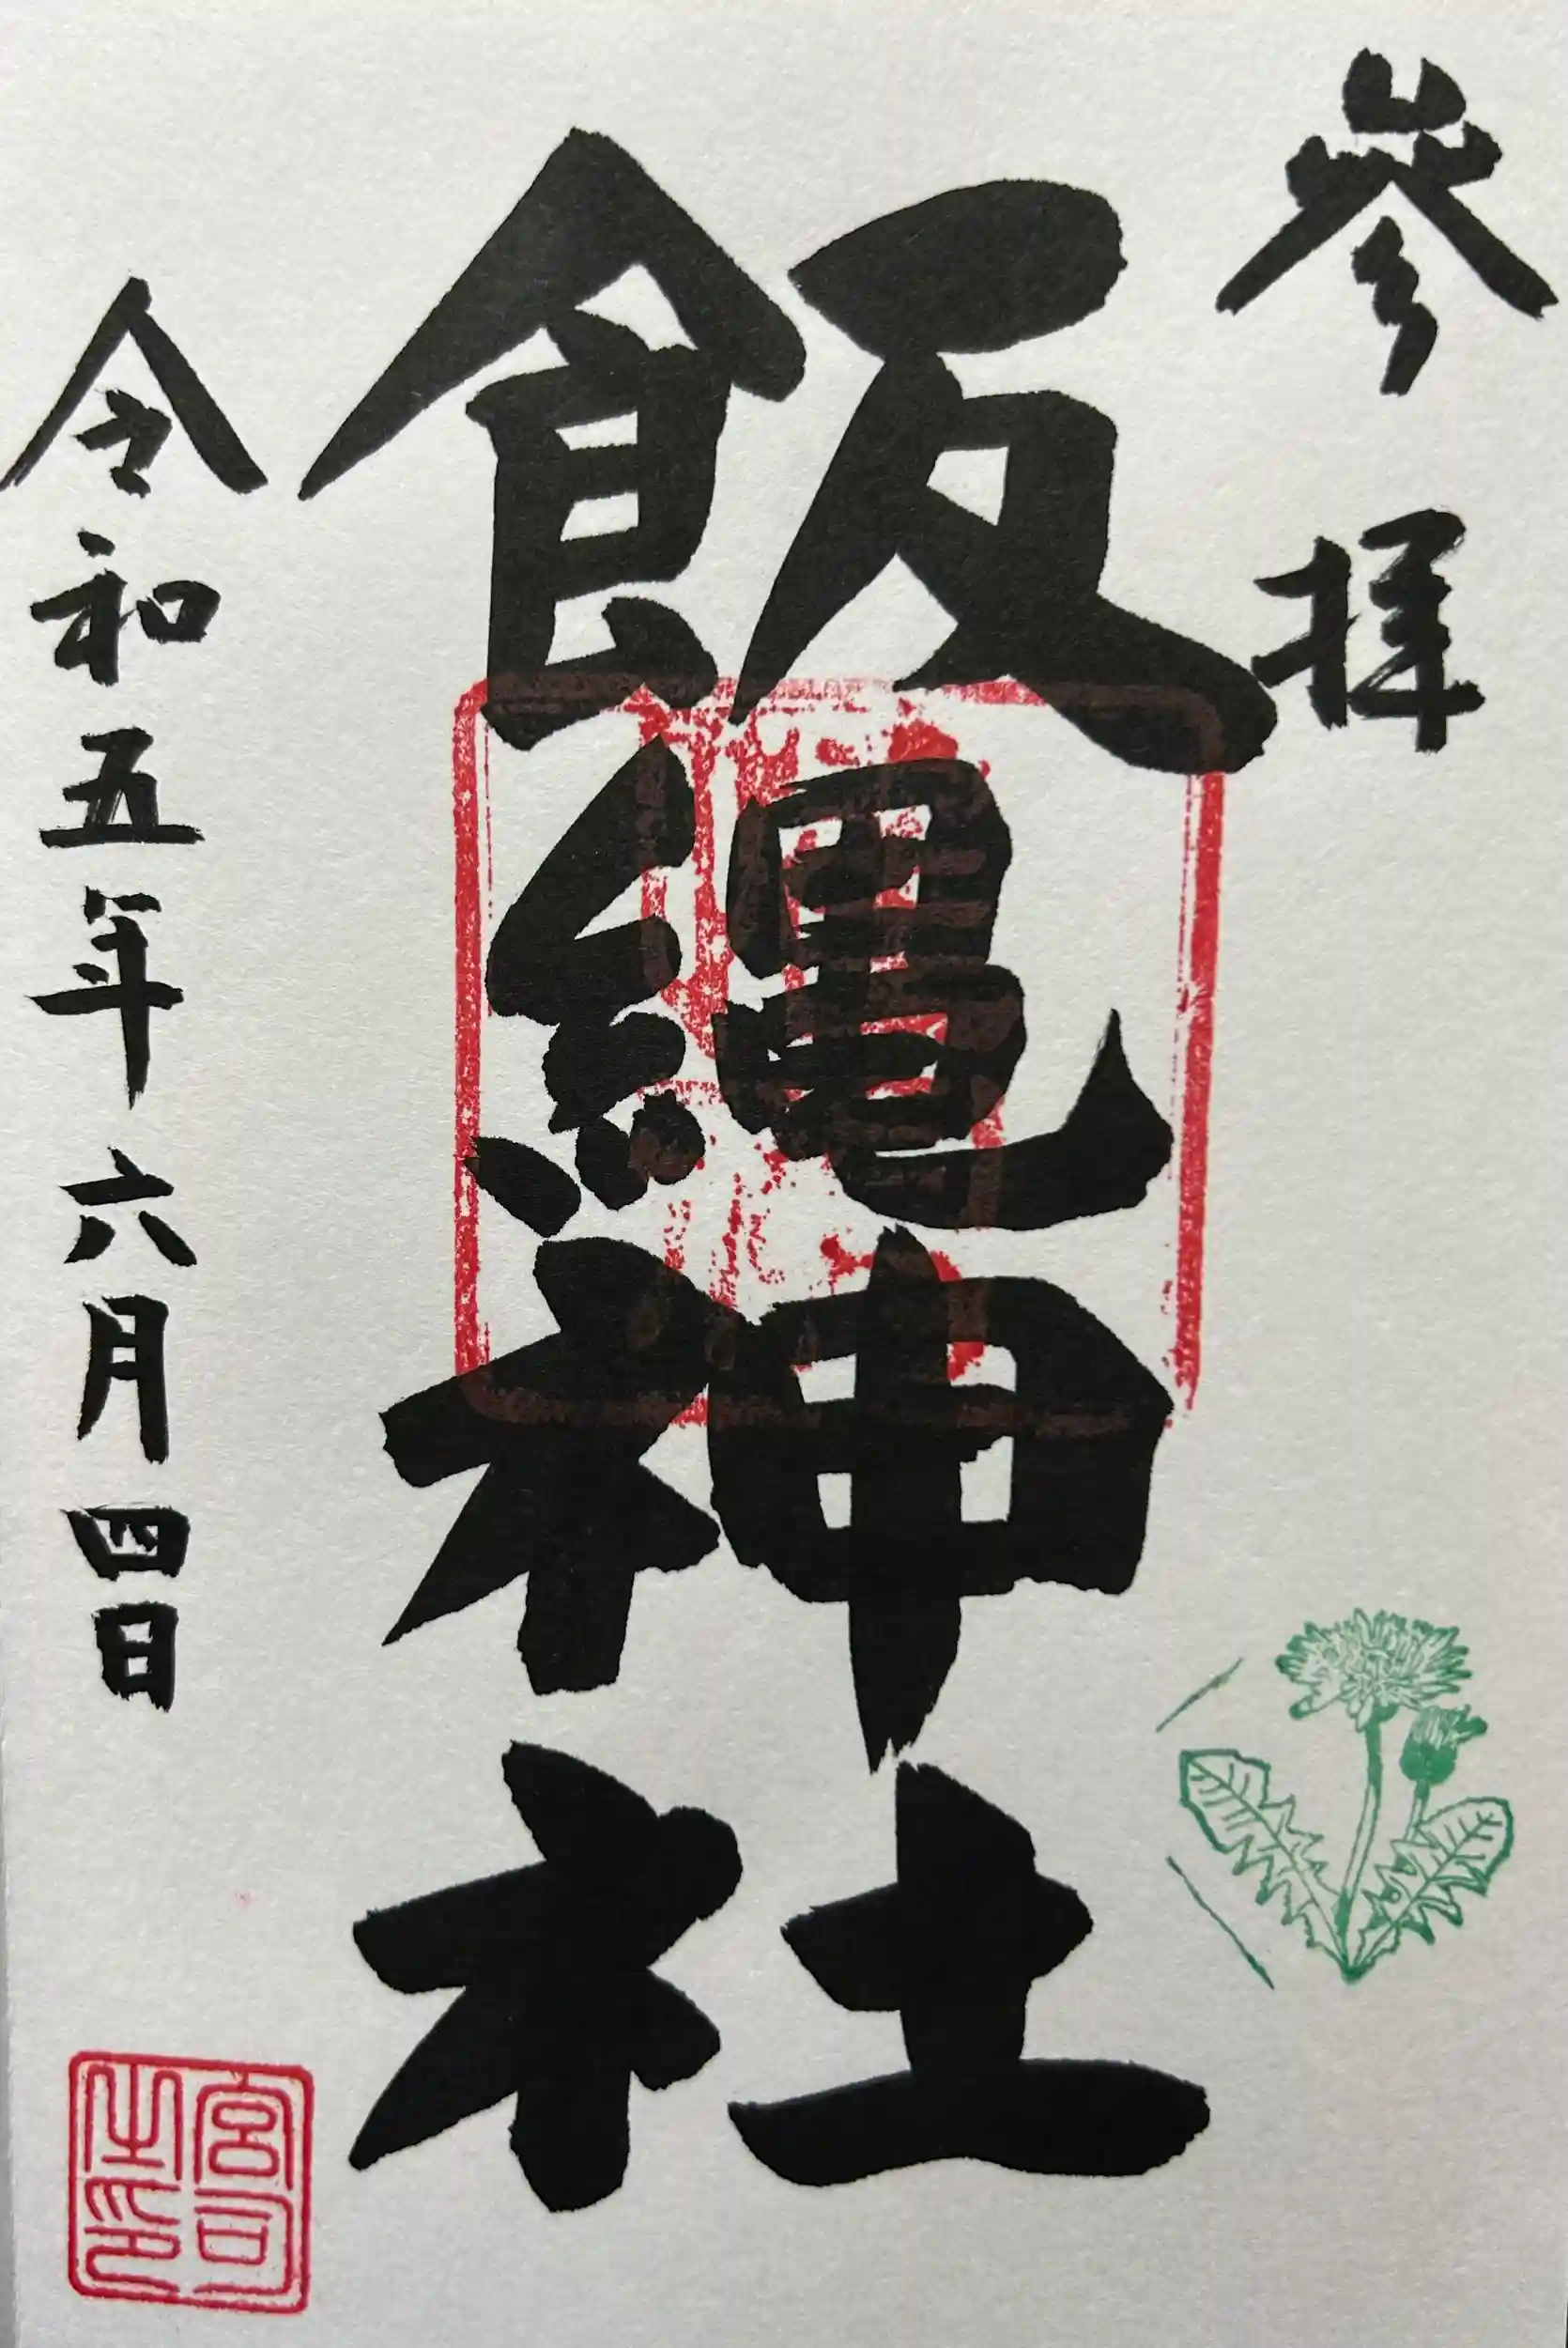 參拝
飯縄神社
令和五年六月四日
宮司之印